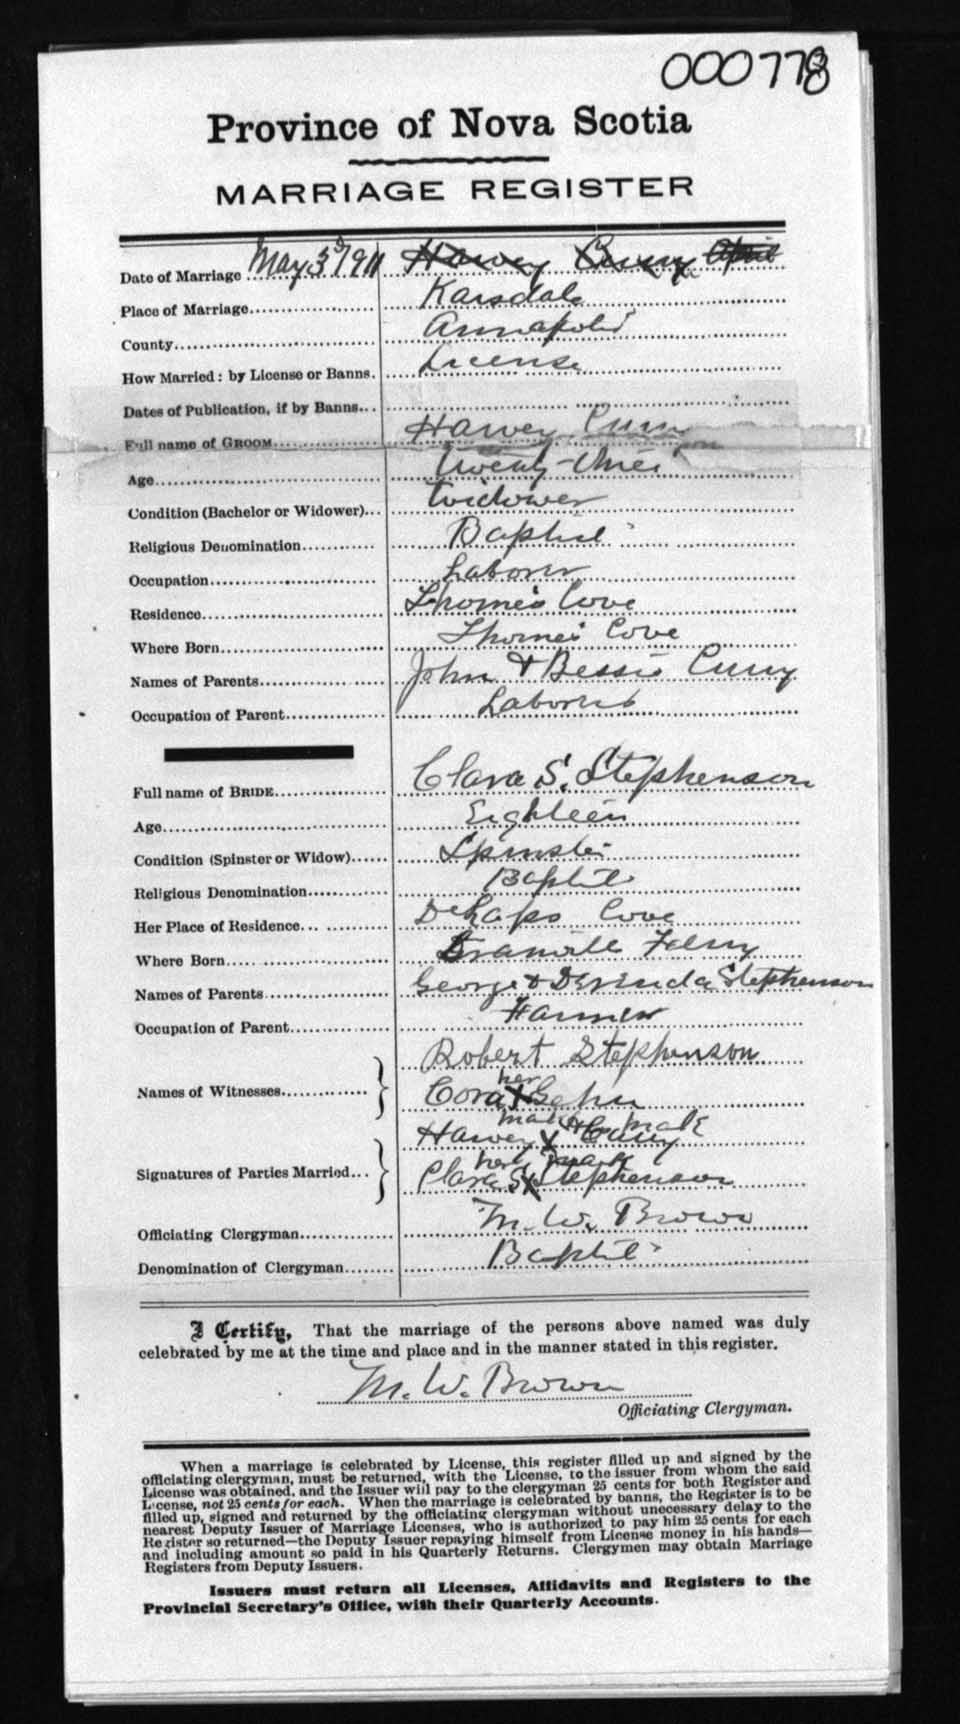 000778
Province of Nova Scotia
MARRIAGE REGISTER
Date of Marriage May 3d 1911 Harvey Curry April
Place of Marriage Karsdale
County Annapolis
How Married: by License or Banns. License
Dates of Publication, if by Banns
Full name of GROOM Harvey Curry
Age twenty-three
Condition (Bachelor or Widower) widower
Religious Denomination Baptist
Occupation Laborer
Residence Thorne's Cove
Where Born Thorne's Cove
Names of Parents John & Bessie Curry
Occupation of Parent Laborer
Full name of BRIDE Clara S. Stephenson
Age Eighteen
Condition (Spinster or Widow) Spinster
Religious Denomination Baptist
Her Place of Residence Cove
Where Born Granville Ferry
Names of Parents George & Stephenson
Occupation of Parent Farmer
Robert Stephenson
her
Names of Witnesses Cora X
mark mark
Harvey X Curry
her mark
Signatures of Parties Married Clara S X Stephenson
Officiating Clergyman M. W. Brown
Denomination of Clergyman Baptist
I Certify, That the marriage of the persons above named was duly
celebrated by me at the time and place and in the manner stated in this register.
M. W. Brown
Officiating Clergyman.
When a marriage is celebrated by License, this register filled up and signed by the
officiating clergyman, must be returned, with the License, to the issuer from whom the said
License was obtained, and the Issuer will pay to the clergyman 25 cents for both Register and
License, not 25 cents for each. When the marriage is celebrated by banns, the Register is to be
filled up, signed and returned by the officiating clergyman without unnecessary delay to the
nearest Deputy Issuer of Marriage Licenses, who is authorized to pay him 25 cents for each
Register so returned—the Deputy Issuer repaying himself from License money in his hands—
and including amount so paid in his Quarterly Returns. Clergymen may obtain Marriage
Registers from Deputy Issuers.
Issuers must return all Licenses, Affidavits and Registers to the
Provincial Secretary's Office, with their Quarterly Accounts.